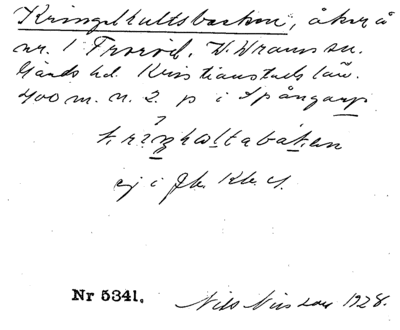 Kringelhultsbacken, åker å
nr. 1 Troröd, V. Vrams sn.
Gärds hd. Kristianstads län.
400 m. n. 2. p i Spångarp
kriŋhaltabakan
ej i Jb. Kb. 4.
Nr 5341. Nils Nilsson 1928.